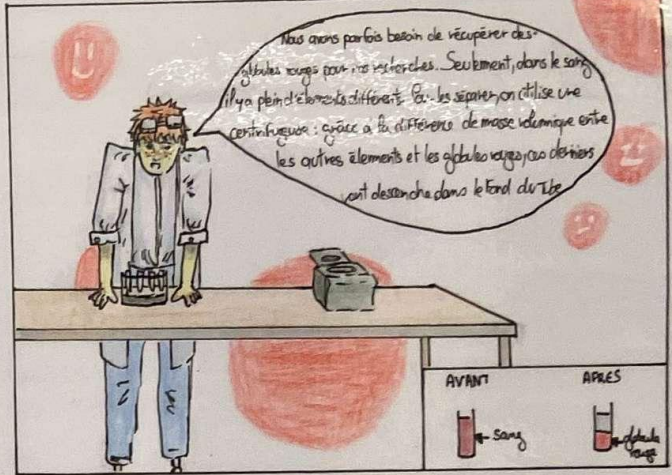 Nous avons parfois besoin de récupérer des
globules rouges pour nos recherches. Seulement, dans le sang
il y a plein d'éléments différents. Pour les séparer, on utilise une
centrifugeuse : grâce a la différence de masse volumique entre
les autres élements et les globules rouges, ces derniers
vont descendre dans le fond du tube
AVANT
APRES
sang
globule
rouge